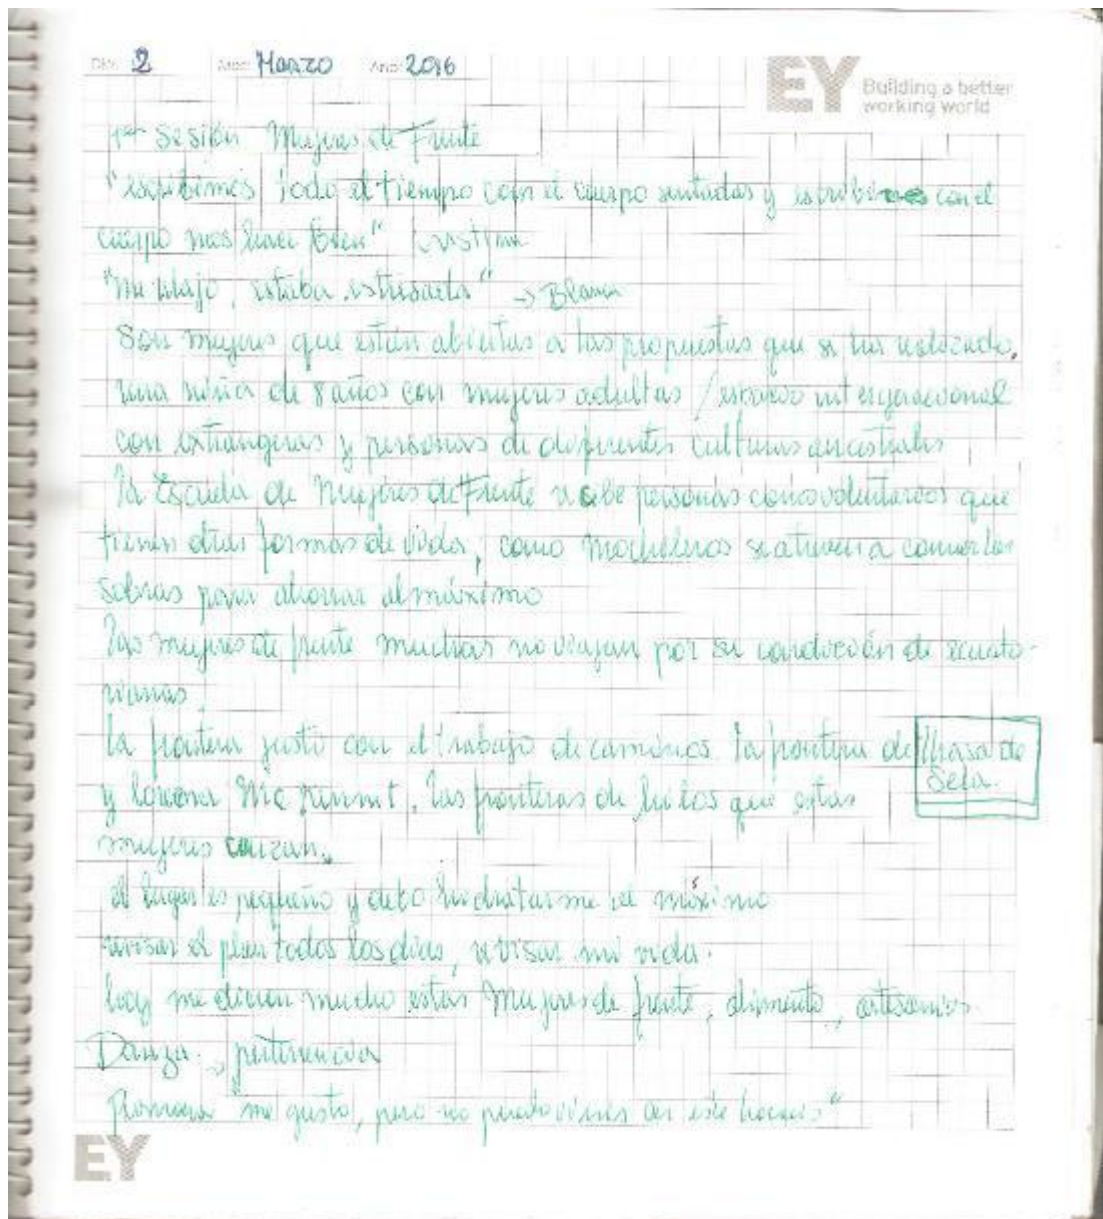 Día: 2 Mes: Marzo Año: 2016
EY Building a better
working world
1er Sesión Mujeres de Frente
"escribimos todo el tiempo con el cuerpo sentadas y escribimos con el
cuerpo nos hace bien" Cristina
"me relajó, estaba estresada" → Blanca
Son mujeres que están abiertas a las propuestas que se han realizado.
una niña de 8 años con mujeres adultas / espacio intergeneracional
con extrangeras y personas de diferentes culturas ancestrales
la Escuela de Mujeres de Frente recibe personas como voluntarios que
tienen otras formas de vida, como mochileros se atreven a comer las
sobras para ahorrar al máximo
las mujeres de frente muchas no viajan por su condición de ecuato-
rianas.
La frontera justo con el trabajo de caminos. la frontera de Lhasa de
Sela.
y lorena Mc . las fronteras de que estas
mujeres cruzan.
el lugar es pequeño y debo hidratarme al máximo
revisar el plan todos los días, revisar mi vida.
hoy me dicen mucho estas Mujeres de frente, alimento, artesanías.
Danza → pertenencia
"me gustó, pero no puedo venir en este horario"
EY